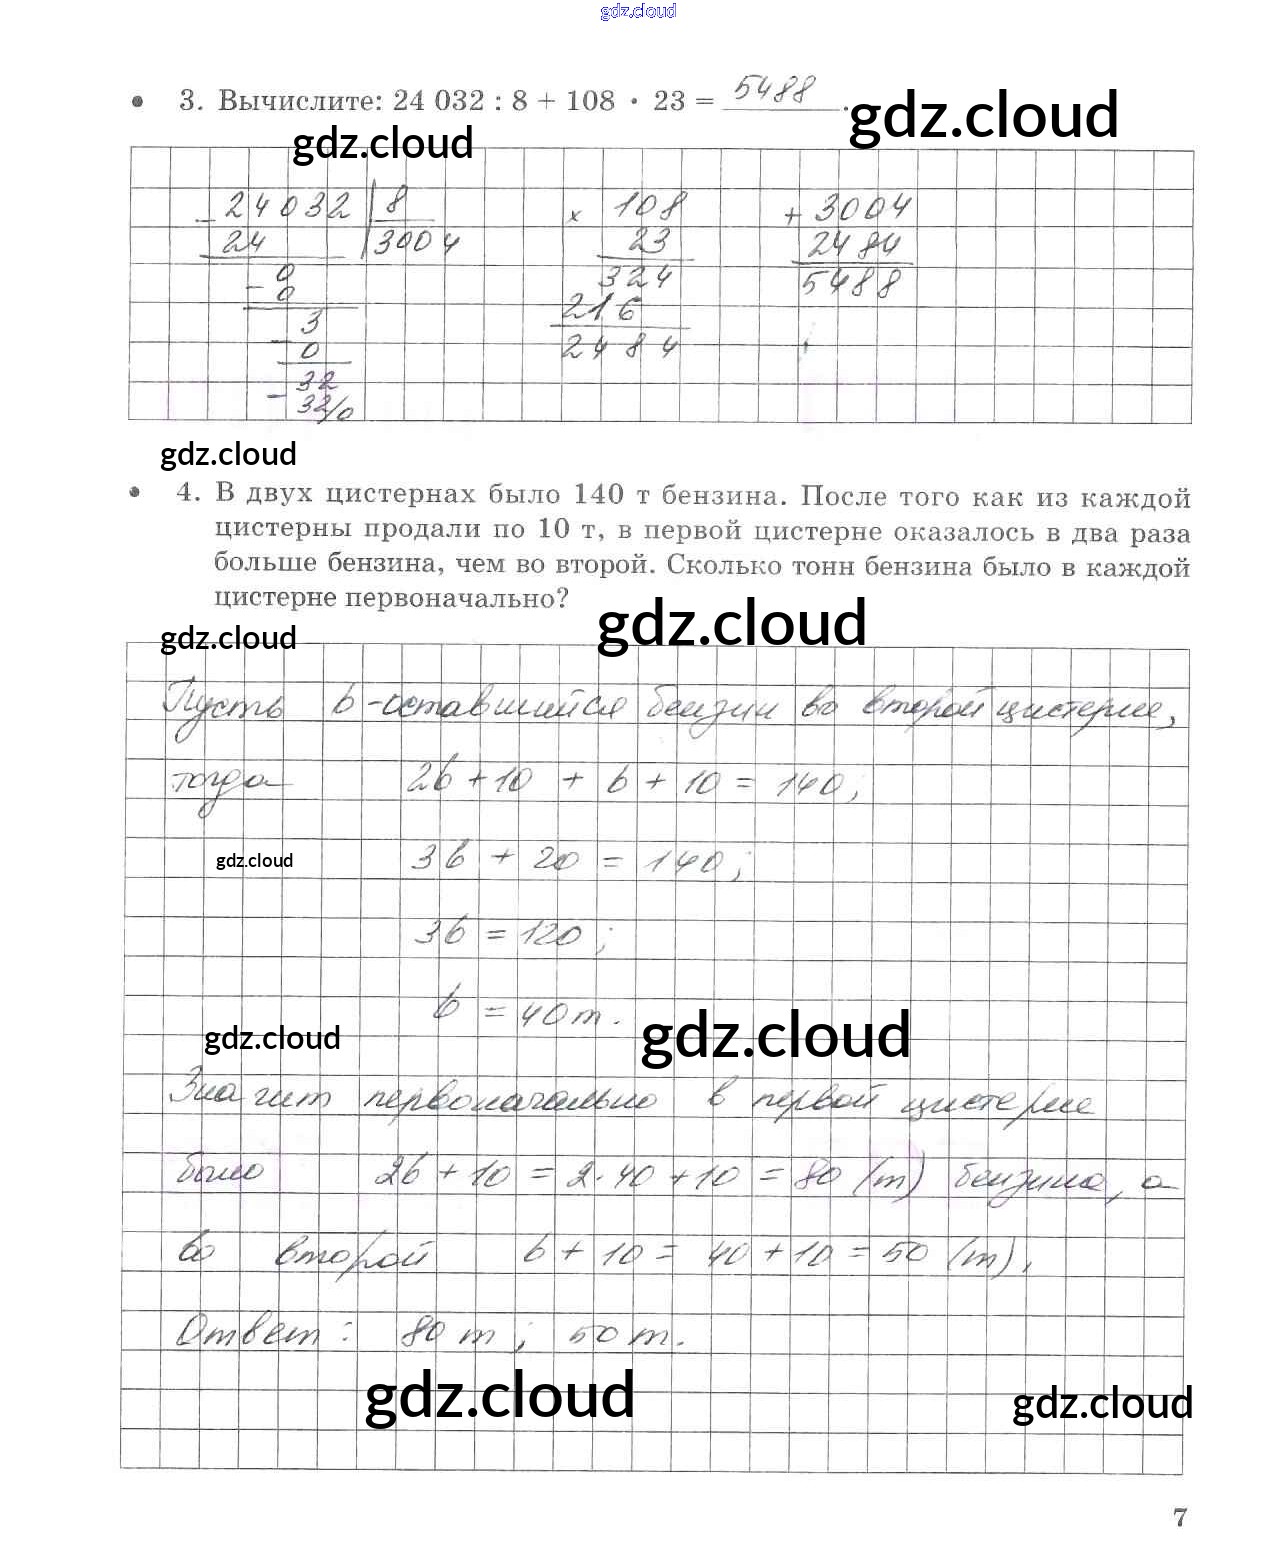 gdz.cloud
• 3. Вычислите: 24 032 : 8 + 108 · 23 = 5488.
gdz.cloud
gdz.cloud
- 24032 | 8
24 3004
- 0
0
3
- 0
- 32
32/0
× 108
23
324
216
2484
+ 3004
2484
5488
gdz.cloud
• 4. В двух цистернах было 140 т бензина. После того как из каждой
цистерны продали по 10 т, в первой цистерне оказалось в два раза
больше бензина, чем во второй. Сколько тонн бензина было в каждой
цистерне первоначально?
gdz.cloud
gdz.cloud
Пусть b-оставшийся бензин во второй цистерне,
тогда 2b + 10 + b + 10 = 140;
gdz.cloud 3b + 20 = 140;
3b = 120;
b = 40 т.
gdz.cloud
gdz.cloud
Значит первоначально в первой цистерне
было 2b + 10 = 2·40 + 10 = 80 (т) бензина, а
во второй b + 10 = 40 + 10 = 50 (т),
Ответ: 80 т; 50 т.
gdz.cloud
gdz.cloud
7